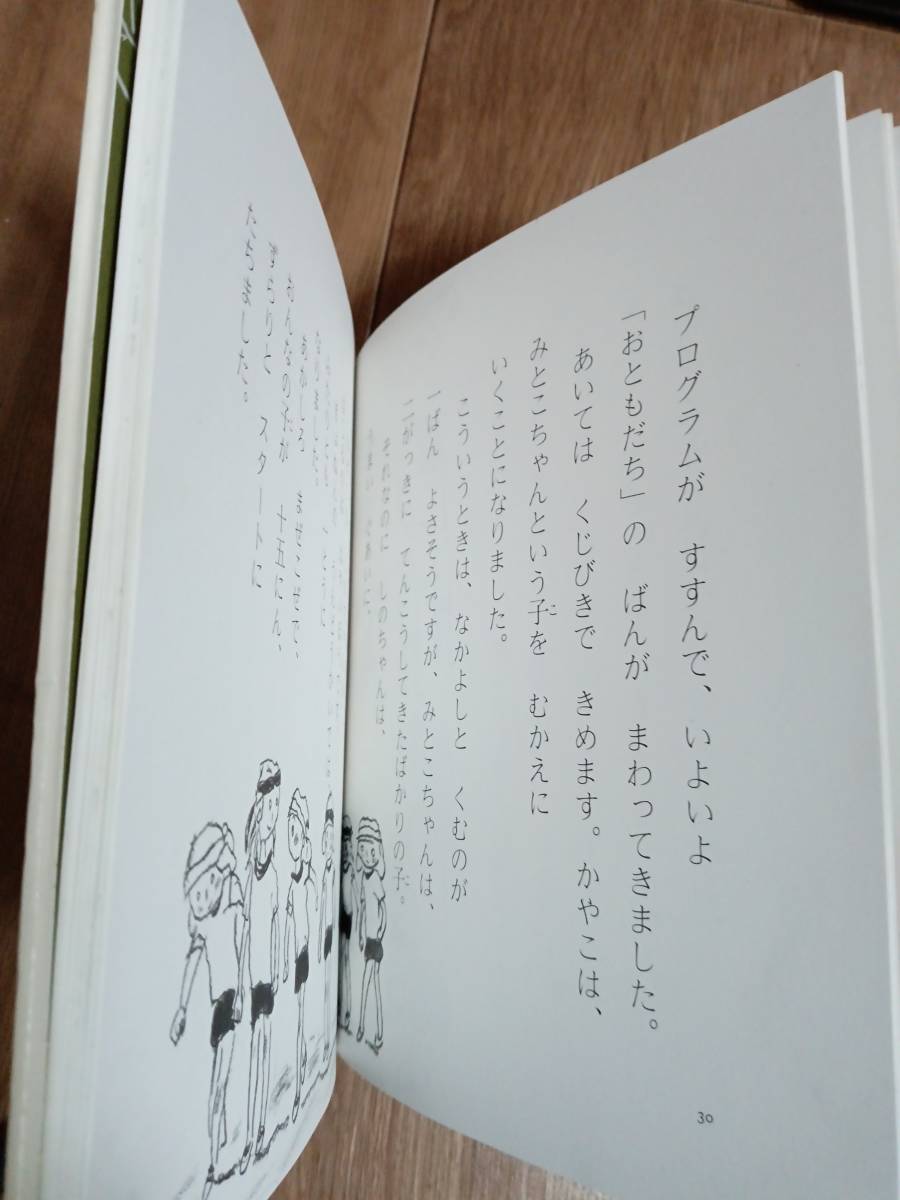 プログラムが　すすんで、いよいよ
「おともだち」の　ばんが　まわってきました。
あいては　くじびきで　きめます。かやこは、
みとこちゃんという子を　むかえに
いくことになりました。
こういうときは、なかよしと　くむのが
一ばん　よさそうですが、みとこちゃんは、
二がっきに　てんこうしてきたばかりの子。
それなのに　しのちゃんは、
なりました。
あかしろ　まぜこぜで、
おんなの子が　十五にん、
ずらりと　スタートに
たちました。
30